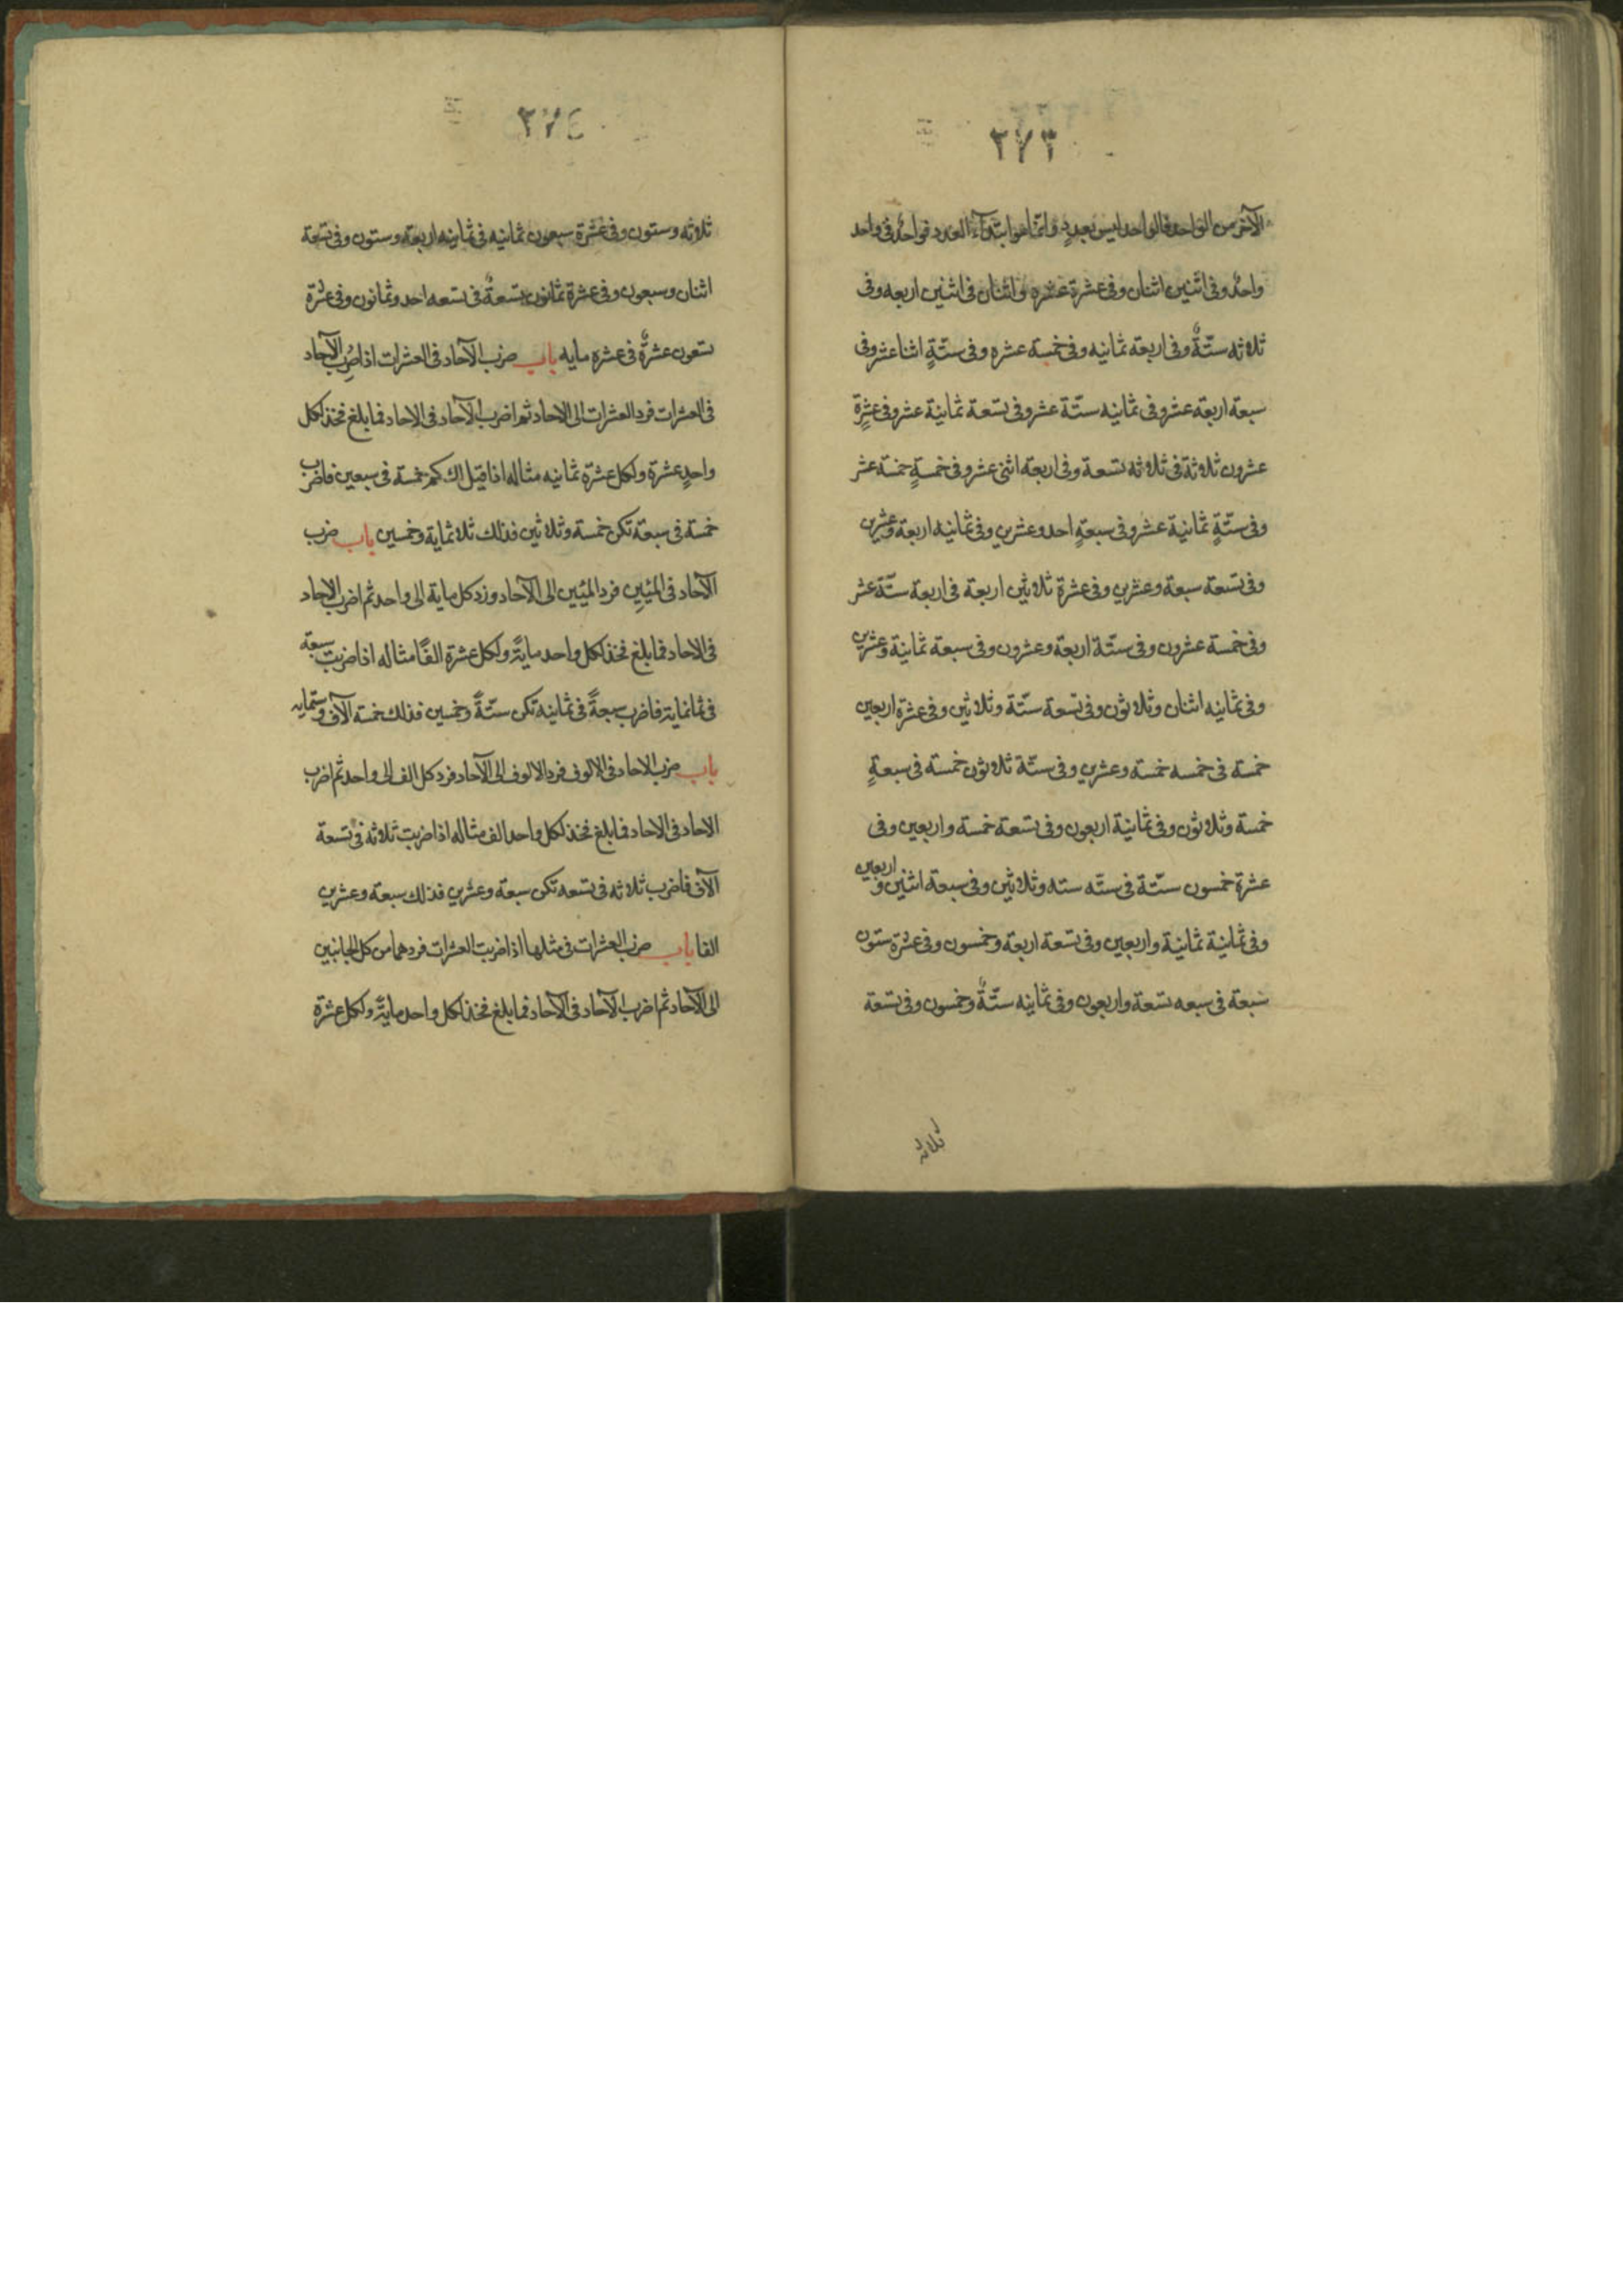 ٢٧٣
الآخر من الواحد فالواحد ليس بعددٍ وانما هو ابتدآء العدد فواحدٌ فى واحد
واحدٌ وفى اثنين اثنان وفى عشرة عشره واثنان فى اثنين اربعه وفى
ثلاثه ستّةٌ وفى اربعة ثمانيه وفى خمسة عشره وفى ستّةٍ اثنا عشر وفى
سبعة اربعة عشر وفى ثمانيه ستّة عشر وفى تسعة ثمانية عشر وفى عشرةٍ
عشرون ثلاثة فى ثلاثه تسعة وفى اربعة اثنى عشر وفى خمسةٍ خمسة عشر
وفى ستّةٍ ثمانية عشر وفى سبعةٍ احد وعشرين وفى ثمانيه اربعة وعشرين
وفى تسعة سبعة وعشرين وفى عشرة ثلاثين اربعة فى اربعة ستّة عشر
وفى خمسة عشرون وفى ستّة اربعة وعشرون وفى سبعة ثمانية وعشرين
وفى ثمانيه اثنان وثلاثون وفى تسعة ستّة وثلاثين وفى عشرة اربعين
خمسة فى خمسه خمسة وعشرين وفى ستّة ثلاثون خمسة فى سبعةٍ
خمسة وثلاثون وفى ثمانية اربعون وفى تسعة خمسة واربعين وفى
عشرة خمسون ستّة فى ستّه سته وثلاثين وفى سبعة اثنين واربعين
وفى ثمانية ثمانية واربعين وفى تسعة اربعة وخمسون وفى عشرة ستون
سبعة فى سبعه تسعة واربعون وفى ثمانيه ستّةٌ وخمسون وفى تسعة
ثلاثه
٢٧٤
ثلاثه وستون وفى عشرة سبعون ثمانيه فى ثمانيه اربعة وستون وفى تسعة
اثنان وسبعون وفى عشرة ثمانون تسعةٌ فى تسعه احد وثمانون وفى عشرة
تسعون عشرةٌ فى عشره مايه باب ضرب الآحاد فى العشرات اذا ضُرِب الآحاد
فى العشرات فرد العشرات الى الاحاد ثم اضرب الآحاد فى الاحاد فما بلغ فخذ لكل
واحدٍ عشرة ولكل عشرة ثمانيه مثاله اذا قيل لك كم خمسة فى سبعين فاضرب
خمسة فى سبعة تكن خمسة وثلاثين فذلك ثلاثماية وخمسين باب ضرب
الآحاد فى المئين فرد المئين الى الآحاد وزد كل ماية الى واحد ثم اضرب الاحاد
فى الاحاد فما بلغ فخذ لكل واحد مايةً ولكل عشرة الفًا مثاله اذا ضربت سبعة
فى ثمانماية فاضرب سبعةً فى ثمانيه تكن ستّةً وخمسين فذلك خمسة آلاف وستمايه
باب ضرب الاحاد فى الالوف فرد الالوف الى الآحاد فرد كل الف الى واحد ثم اضرب
الاحاد فى الاحاد فما بلغ فخذ لكل واحد الف مثاله اذا ضربت ثلاثه فى تسعة
آلاف فاضرب ثلاثه فى تسعه تكن سبعة وعشرين فذلك سبعة وعشرين
الفا باب ضرب العشرات فى مثلها اذا ضربت العشرات فردهما من كل الجانبين
الى الآحاد ثم اضرب الآحاد فى الآحاد فما بلغ فخذ لكل واحد مايةً ولكل عشرة